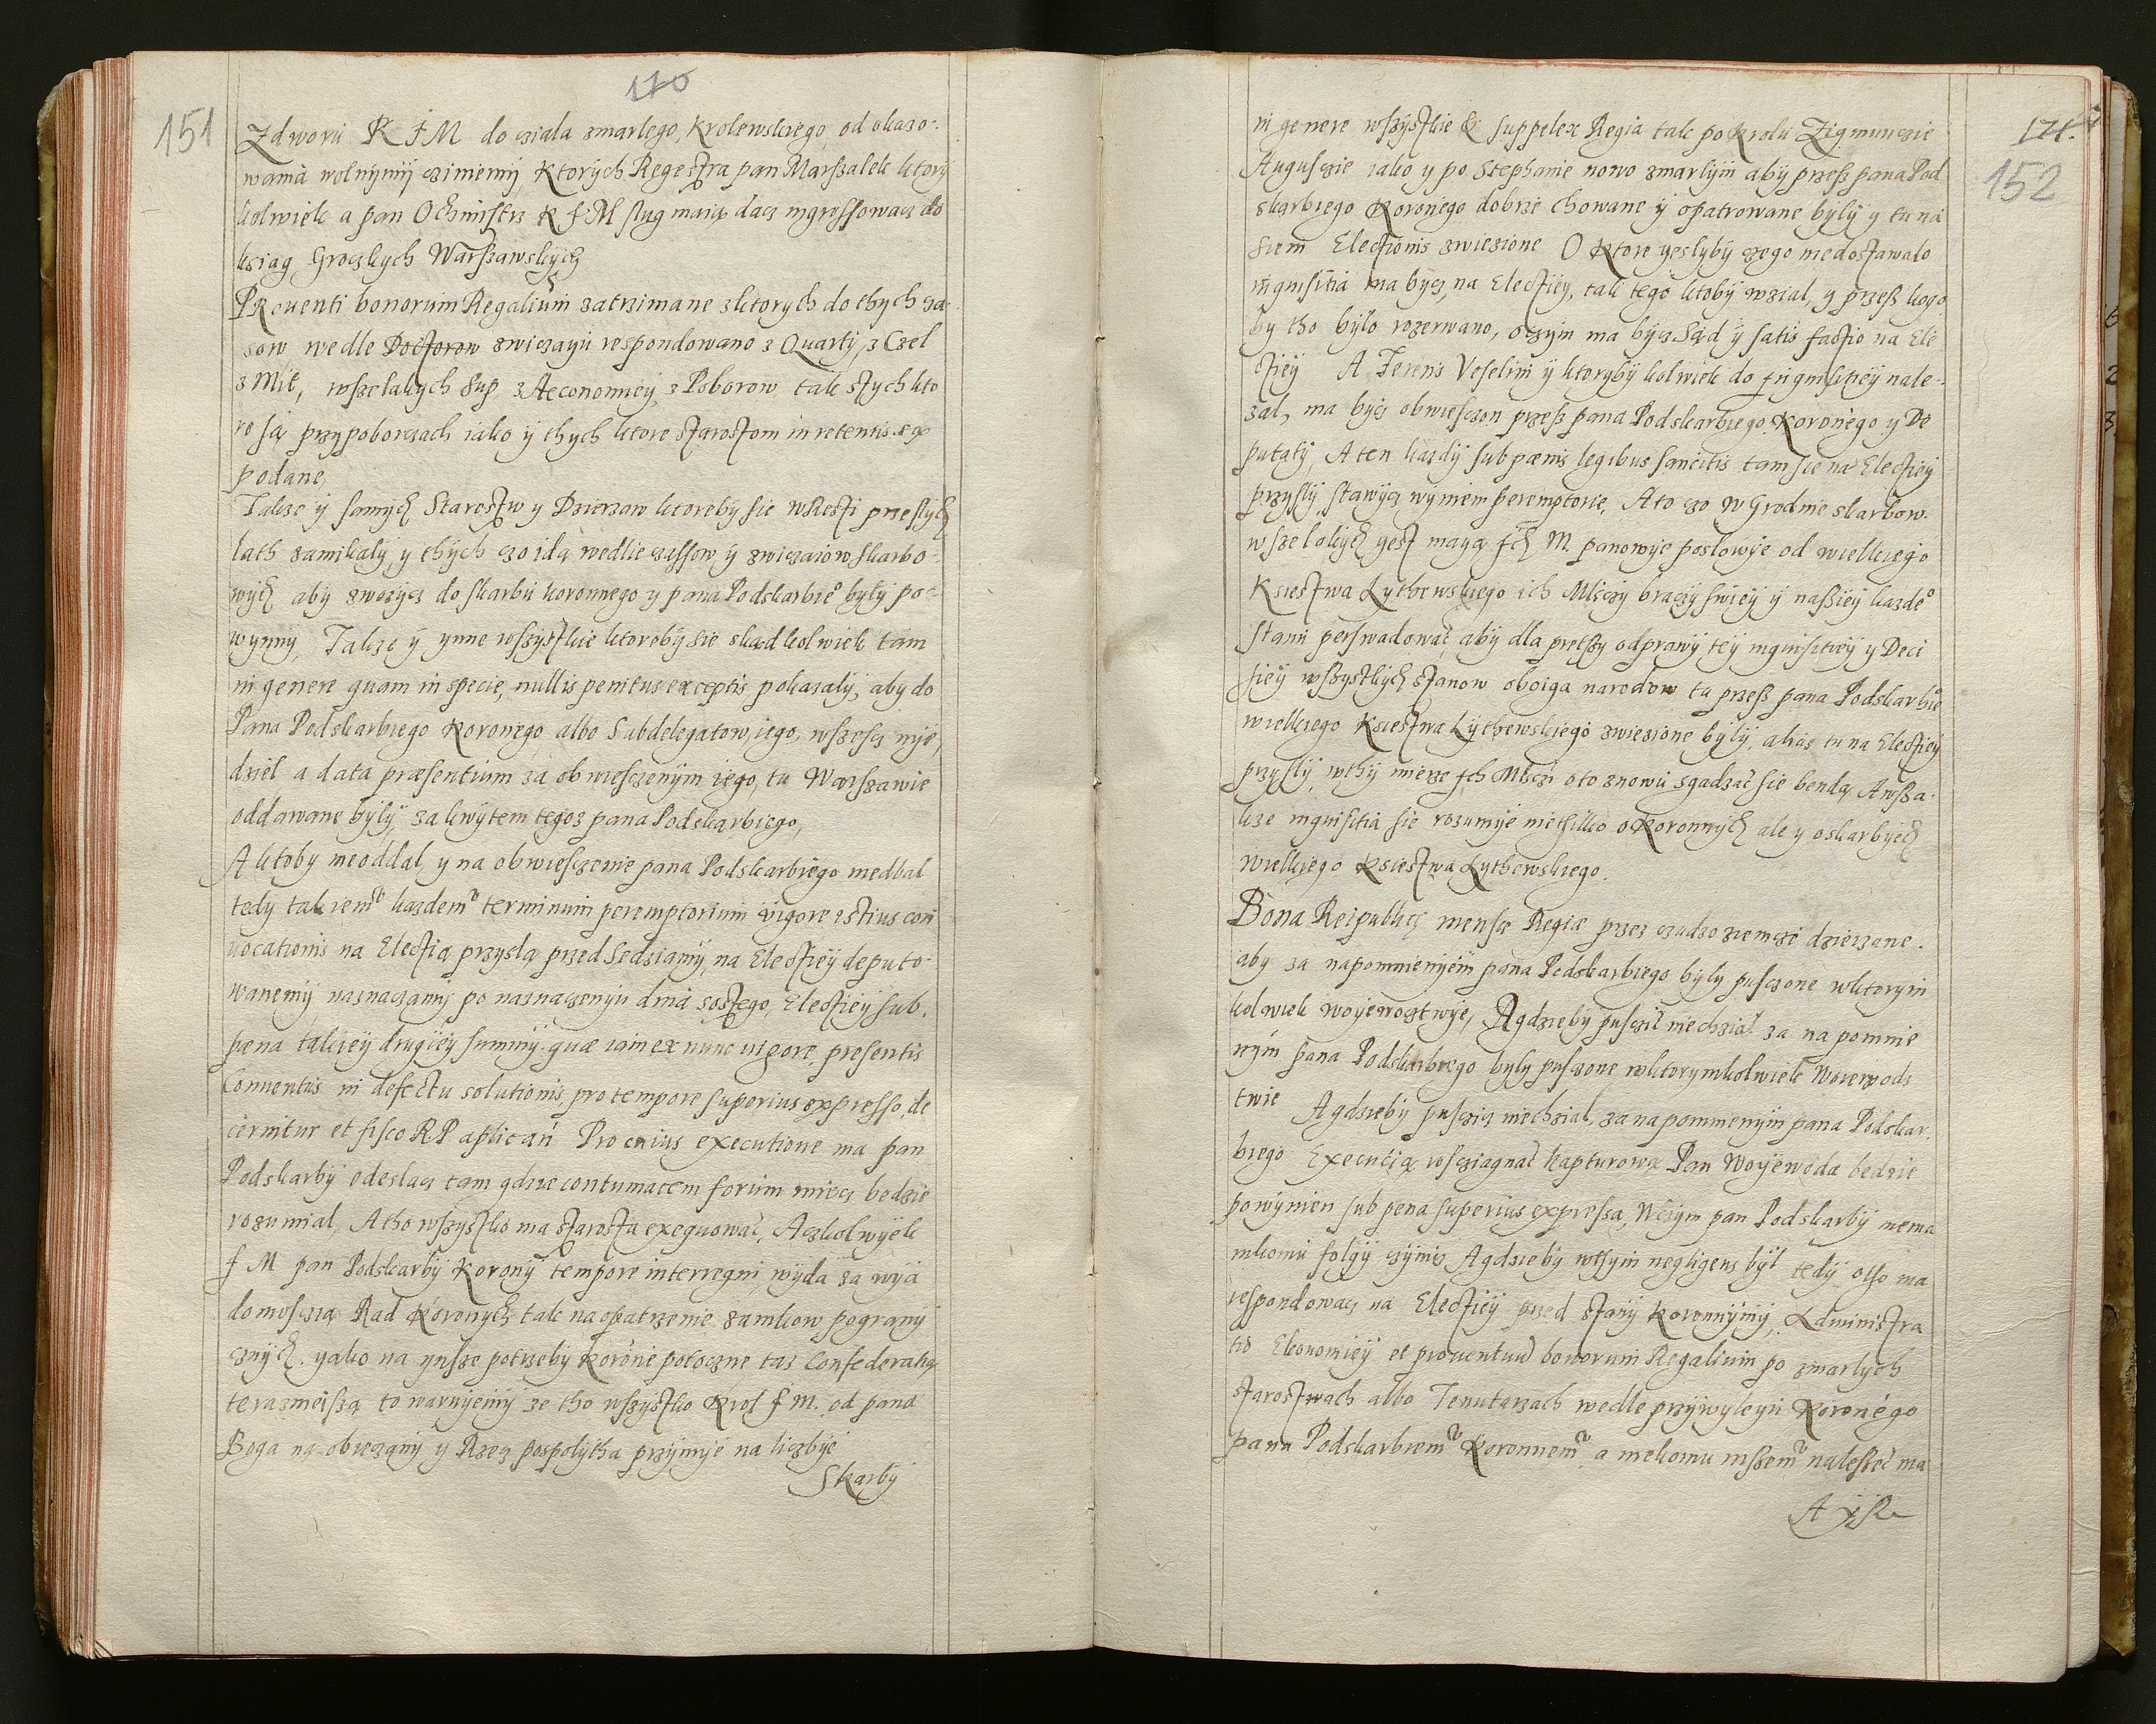 170
151
Zdworu K J M do cziala zmarlego, Krolewskiego, od okazo-
wania wolnymy czinieniy, Ktorych Regestra pan Marszalek ktory
kolwiek a pan Ochmistrz K J M slug maią dacz ingrossowacz do
ksiag Grodskych Warszawskych
Prouenti bonorum Regalium zatrzimane z ktorych do thych cza
sow wedle Doctorow zwiczayu respondowano z Quarty, z Czel
z Mit, wszelakych Sup, z Aeconomiey, z Poborow tak s tych kto
re są przy poborczach iako y thych ktore starostom in retentis są
podane,
Takze y samych Starostw y Dzierzaw ktoreby sie w kresi przeslych
lath zamikaly, y thych czo idą wedlie czessow y zwiczaiow skarbo-
wych aby zwozicz do skarbu koronnego y pana Podskarbie° byly po-
wynny, Takze y ynne wszystkie ktoroby sie skad kolwiek tam
in genere quam in specie, nullis penitus exceptis pokazaly, aby do
Pana Podskarbiego Koronego, albo Subdelegatow, iego, w szescz nye,
dziel a data præsentium za obwiesczenym iego, tu Warszawie
oddawane byly, za kwytem tegoz pana Podskarbiego,
A ktoby nieoddal, y na obwiesczenie pana Podskarbiego niedbal
tedy takiemu kazdemu terminum peremptorium vigore istius con
uocationis na Electią przyslą przed Sedziamy, na Electiey deputo-
wanemy naznaczamy po naznaczenyu dnia szostego, Electiey sub
pæna takiey drugiey summy quæ iam ex nunc vigore presentis
Conuentus in defectu solutionis, pro tempore superius expresso, de
cernitur et fisco RP aplicari Pro cuius executione ma pan
Podskarby odeslacz tam gdzie contumacem forum miecz bedzie
rozumial, A tho wszystko ma starosta exequowac, Aczkolwyek
J M pan Podskarby Korony tempore interregni, wyda za wya
domoscią Rad Koronych tak na opatrzenie zamkow pograny
cznych yako na ynsze potrzeby Koronie potoczne taz Confederatią
terazneiszą to warnyemy ze tho wszystko Krol J M. od pana
Boga na obieczany y Rzecz pospolytha przymye na liczbye
Skarby
171
152
in genere wszystkie & suppelex Regia tak po Krolu Zigmunczie
Augusczie iako y po Stephanie nowo zmarlym aby przesz pana Pod
skarbiego Koronego dobrze chowane y opatrowane byly y tu na
Siem Electionis zwiezione O Ktore yeslyby czego niedostawalo
inquisitia ma bycz, na Electiey, tak tego ktoby wzial, y przesz kogo
by tho bylo rozerwano, o czym ma bycz Sąd y satis factio na Ele
ctiey A Ferens Veselini y ktoryby kolwiek do Jnquisitiey nale-
zal, ma bycz obwiesczon przesz pana Podskarbiego Koronego y De
putaty, A ten kazdy sub pænis legibus sancitis tam sie na Electiey
przysly, stawycz wynien peremptorie, A to czo w Grodnie skarbow
wszelakych yest mayą Jch M. panowye poslowye od wielkiego
Ksiestwa Lythewskiego ich Mlsczy braczy swiey y naszey kazde°
stanu perswadowac, aby dla pretszy odprawy tey inquisitiey y Deci
siey wszystkych stanow oboiga narodow tu przesz pana Podskarbie°
wielkiego Ksiestwa Lythewskiego zwiezione byly, alias tu na Electiey
przysly, w thy mierze Jch Mlsczi oto znowu sgadzac sie bendą A wsza-
kze inquisitia sie rozumye nie tilko o Koronnych ale y o skarbyech
wielkiego Ksiestwa Lythewskiego.
Bona Reipublicę mensæ Regiæ przez czudzoziemcze dzierzane.
aby za napomnienyem pana Podskarbiego byly pusczone w ktorym
kolwiek woyewocztwye, A gdzieby pusczic niechzial za na pomnie
nym pana Podskarbiego byly pusczone w ktorymkolwiek Woiewodz
twie A gdzieby pusczicz niechzial, za napomnienym pana Podskar-
biego Executią rosciagnac kapturową Pan Woyewoda bedzie
powynien sub pena superius expressa, Wczym pan Podskarby niema
nikomu folgy czynicz A gdzieby w thym negligens byl tedy otho ma
respondowacz na Electiey przed stany koronnymy, Administra
tio Ekonomiey et prouentuum bonorum Regalium po zmarlych
starostwach albo Tenutarzach wedle przywyleyu Koronego
panu Podskarbiemu Koronnemu a niekomu inszemu nalesec ma
A ysz